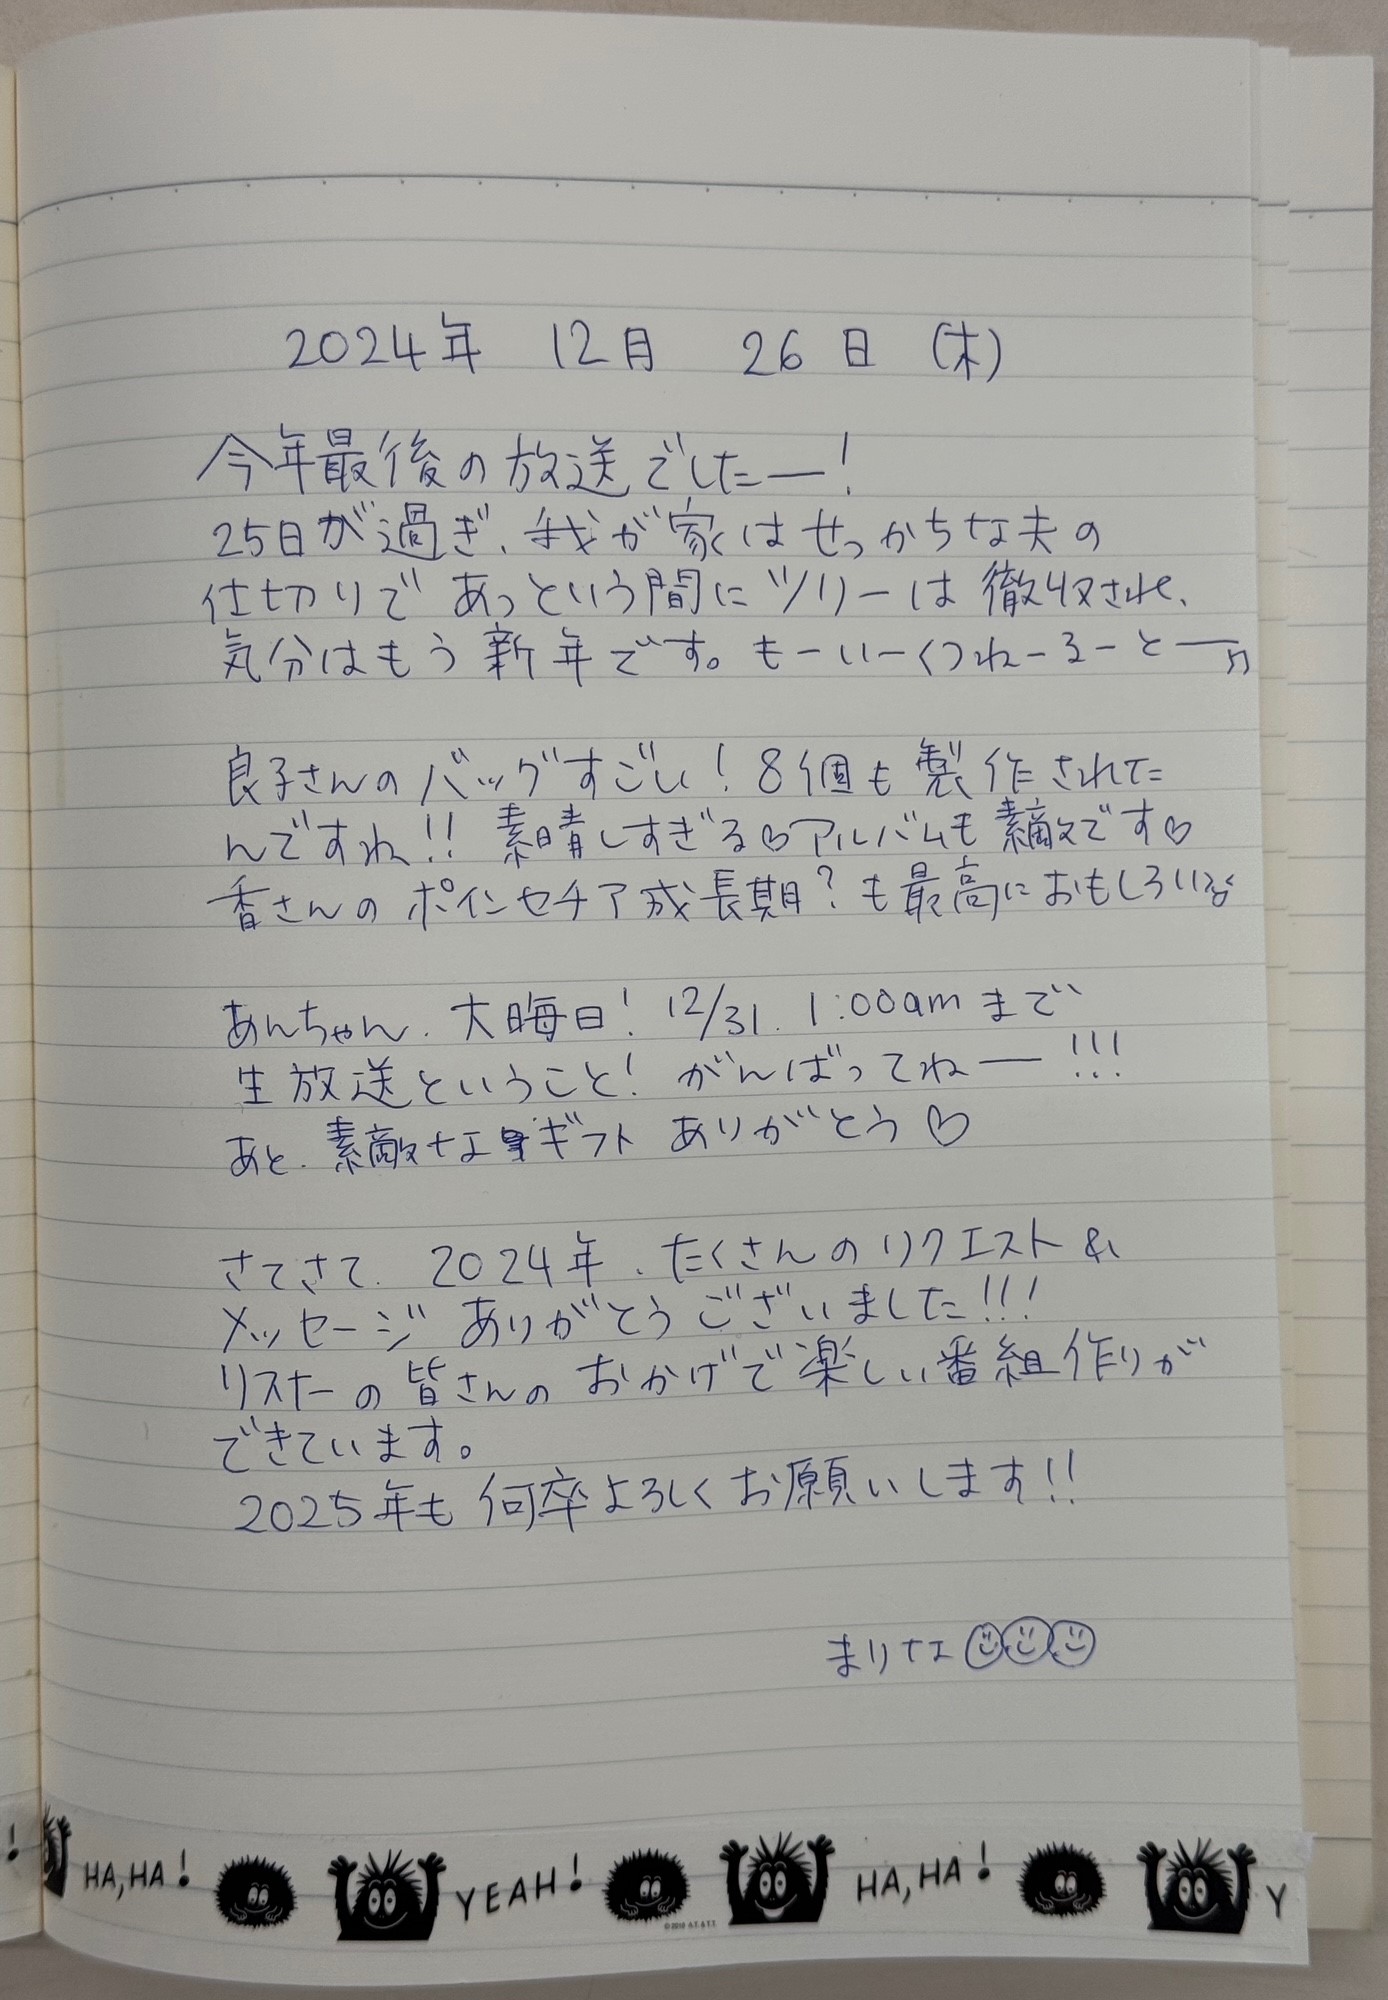 2024年 12月 26日 (木)
今年最後の放送でしたー!
25日が過ぎ、我が家はせっかちな夫の
仕切りであっという間にツリーは撤収され、
気分はもう新年です。もーいーくつねーるーとー♫
良子さんのバッグすごい!8個も製作されてた
んですね!!素晴しすぎる♡アルバムも素敵です♡
香さんのポインセチア成長期?も最高におもしろい
あんちゃん、大晦日!12/31、1:00amまで
生放送ということ!がんばってねー!!!
あと、素敵なギフトありがとう♡
さてさて、2024年、たくさんのリクエスト&
メッセージありがとうございました!!!
リスナーの皆さんのおかげで楽しい番組作りが
できています。
2025年も何卒よろしくお願いします!!
まりな
! HA, HA! YEAH! HA, HA! Y